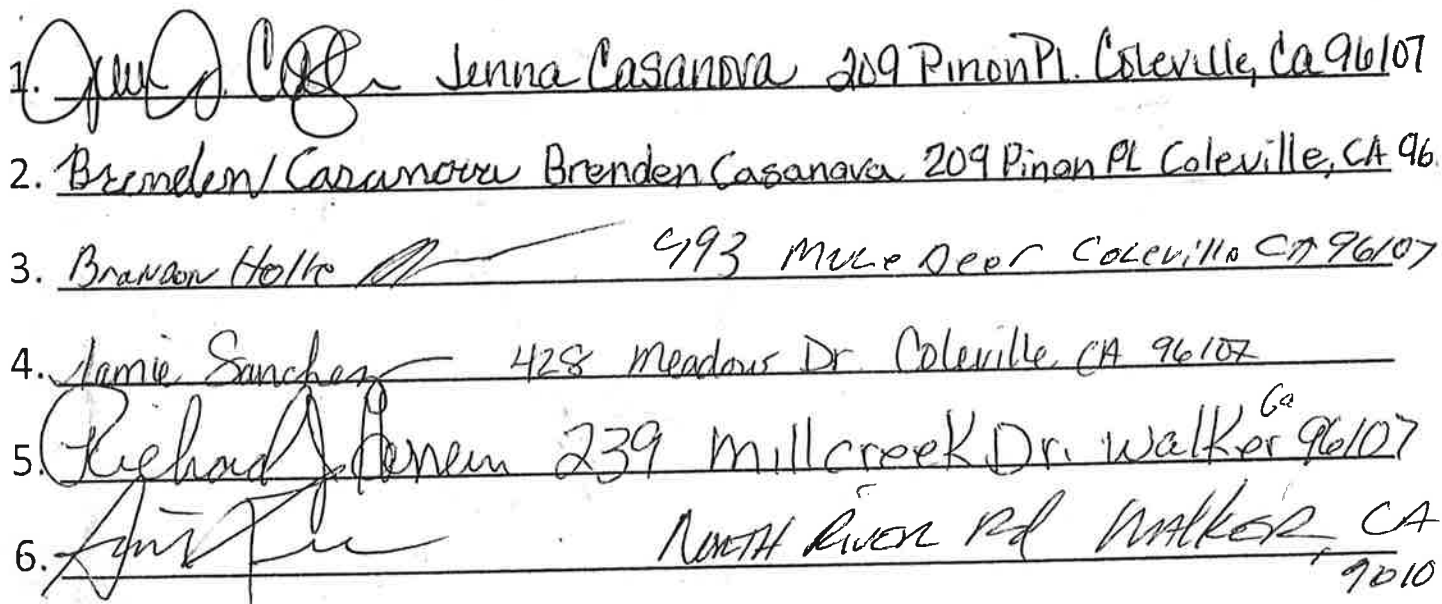 1. Jenna Casanova 209 Pinon Pl. Coleville, Ca 96107
2. Brenden Casanova Brenden Casanova 209 Pinon PL Coleville, CA 96
3. Brandon Holle 493 Mule Deer Coleville CA 96107
4. Jamie Sanchez 428 Meadows Dr. Coleville, CA 96107
5. Richard J. 239 Millcreek Dr. Walker Ca 96107
6. North River Rd Walker, CA
9010